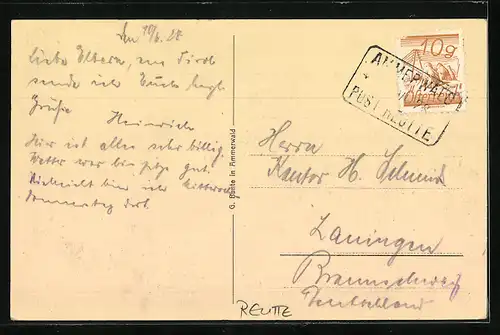 den 18/6. 28
Liebe Eltern, aus Tirol
sende ich Euch herzl.
Grüße
Heinrich
Hier ist alles sehr billig.
Wetter war bis jetzt gut.
Vielleicht bin ich Mittwoch
Donnerstag dort.
G. Bunte in Ammerwald
10g
AMMERWALD
POST REUTTE
Herrn
Kantor H. Schmidt
Braunschweig
Deutschland
REUTTE